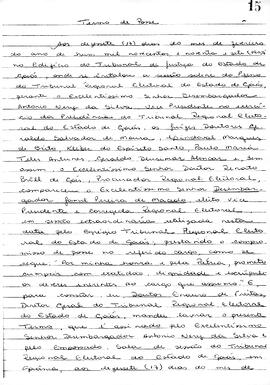 15
Termo de Posse
Aos dezessete (17) dias do mês de fevereiro
do ano de hum mil novecentos e noventa e
no Edifício do Tribunal de Justiça do Estado de
Goiás, onde se a sessão
do Tribunal Regional Eleitoral do Estado de Goiás,
o Excelentíssimo Senhor Desembargador
Antonio Nery da Silva, Vice Presidente no exercí-
cio da Presidência do Tribunal Regional Eleito-
ral do Estado de Goiás, os juízes Doutores
Salvador de Moura,
de Brito, do Espírito Santo, Paulo Maria
Teles Antunes, Geraldo Alencar e, bem
assim, o Excelentíssimo Senhor Doutor
de Goiás, Procurador Regional Eleitoral,
compareceu o Excelentíssimo Senhor Desembar-
gador Pereira de Macedo, eleito Vice
Presidente e Corregedor Regional Eleitoral
em sessão extraordinária realizada nesta
data pelo Egrégio Tribunal Regional Eleito-
ral do Estado de Goiás, prestando o compro-
misso de posse no referido cargo, como se
segue: Por minha honra e pela Pátria, prometo
cumprir com exatidão, dignidade e escrúpulo
os deveres inerentes ao cargo que assumo. E
para constar, eu, Doutor de Freitas,
Diretor Geral do Tribunal Regional Eleitoral
do Estado de Goiás, mandei lavrar o presente
Termo, que é assinado pelo Excelentíssimo
Senhor Desembargador Antonio Nery da Silva e
pelo Empossado. Sala de Sessão do Tribunal
Regional Eleitoral do Estado de Goiás, em
Goiânia, aos dezessete (17) dias do mês de